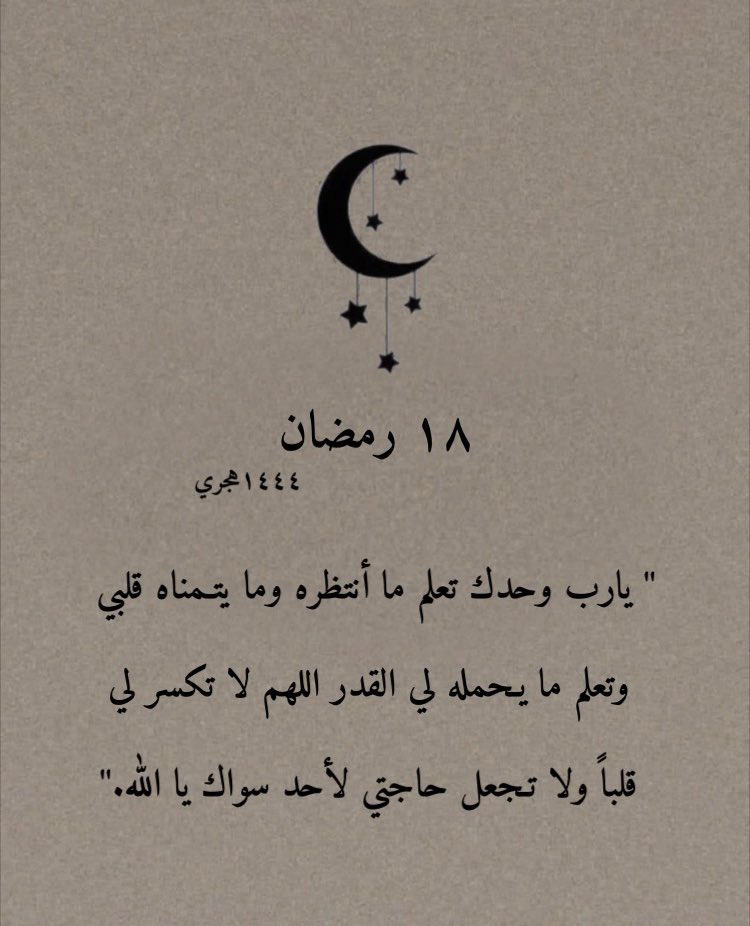 ١٨ رمضان
١٤٤٤هجري
" يارب وحدك تعلم ما أنتظره وما يتمناه قلبي
وتعلم ما يحمله لي القدر اللهم لا تكسر لي
قلباً ولا تجعل حاجتي لأحد سواك يا الله."